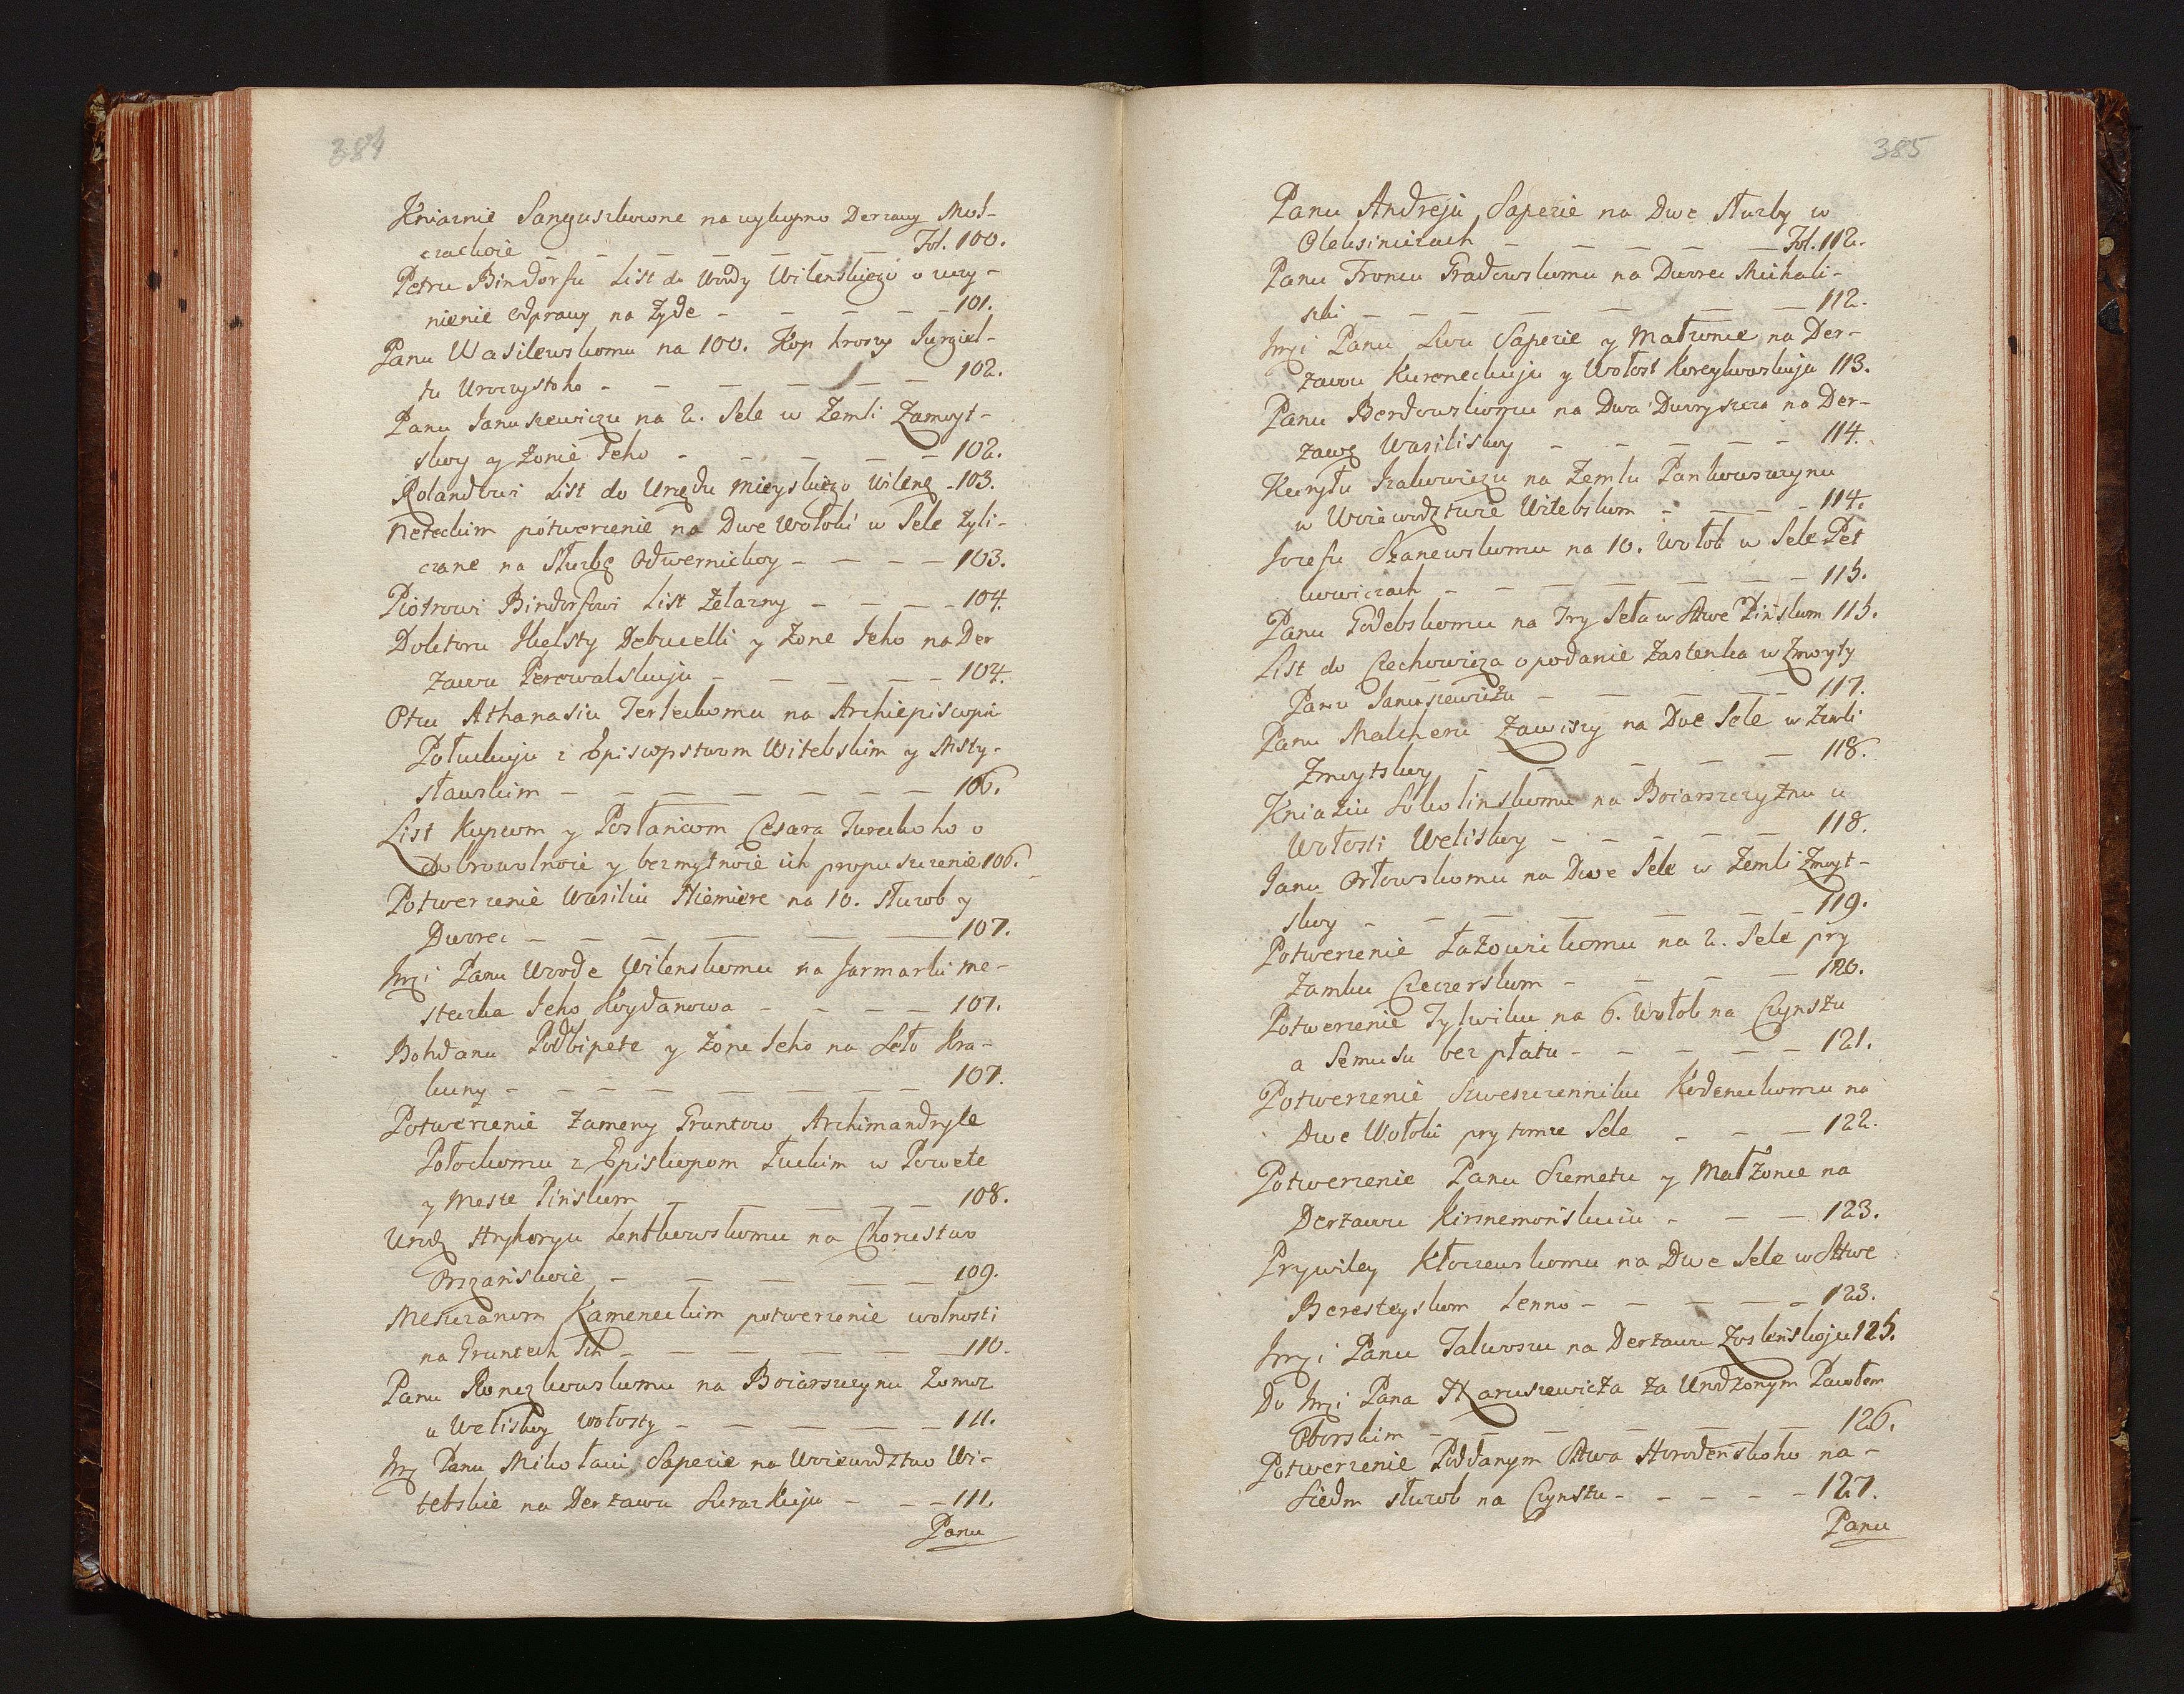 384
Kniaznie Sanguszkowne na wykupno Derzawy Mos-
czackoie — — — — — — Fol. 100.
Petru Bindorfu List do Wwdy Wilenskiego o uczy-
nienie Odprawy na Żyde — — — — — 101.
Panu Wasilewskomu na 100. Kop hroszy Jurgiel-
tu Uroczystoho — — — — — — 102.
Panu Januszewiczu na 2. Sele w Zemli Żamoyt-
skoy y Żonie Jeho — — — — — 102.
Rolandowi List do Urzędu Mieyskiego Wileńs. 103.
Neteckim potwerzenie na Dwe Wołoki w Sele Żyli-
czane na Służbę Odwernickoy — — — — 103.
Piotrowi Bindorfowi List Żelazny — — — — 104.
Doktoru Helżty Debucelli y Żone Jeho na Der
żawu Perewalskuju — — — — — 104.
Otcu Athanasiu Terleckomu na Archiepiscopiu
Połuckuju z Episcopstwom Witebskim y Msty-
sławskim — — — — — — — — 106.
List Kupcom y Posłańcom Cesara Tureckoho o
dobrowolnoie y bezmytnoie ich propuszczenie 106.
Potwerzenie Wasiliu Niemiere na 10. służob y
Dworec — — — — — 107.
Jmści Panu Wwode Wilenskomu na Jarmarki me-
steczka Jeho Koydanowa — — — — 107.
Bohdanu Podbipete y żone Jeho na Seło Kra-
kuny — — — — — — — — 107.
Potwerzenie Zameny Gruntow Archimandryte
Połockomu z Episkopom Łuckim w Powete
y Mesze Pińskom — — — — — 108.
Urodz Hryhoryu Lentkowskomu na Chorustwo
Orszańskoie — — — — — 109.
Mesczanom Kameneckim potwerzenie wolnosti
na Gruntech Ich — — — — — — 110.
Panu Konczkowskomu na Boiarszczynu Zomoz
u Weliskoy Wołosty — — — — — 111.
Jmś Panu Mikołaiu Sapezie na Woiewodztwo Wi-
tebskie na Derżawu Surazkuju — — — 111.
Panu
385
Panu Andreju Sapezie na Dwe służby w
Oleksiniczach — — — — — Fol. 112.
Panu Froncu Gradowskomu na Dworec Michali-
szki — — — — — — — — 112.
Jmści Panu Lwu Sapezie y Małżonce na Der-
żawu Kureneckuju y Wołost Koreykowskuju 113.
Panu Berdowskomu na Dwa Dworyszcza na Der-
żawę Wasiliskoy — — — — — 114.
Kuryłu Izakowiczu na Zemlu Pankowszczynu
w Woiewodztwie Witebskom — — — — 114.
Jozefu Szanewskomu na 10. Wołok w Sele Pet
kowiczach — — — — — — — 115.
Panu Godebskomu na Try Seła w Sttwe Pińskom 115.
List do Czechowicza o podanie Zastenka w Żmoyty
Panu Januszewiczu — — — — — 117.
Panu Malcheru Zawiszy na Dwe Sele w Zemli
Żmoytskoy — — — — — — 118.
Kniaziu Sokolinskomu na Boiarszczyznu u
Wołosti Weliskoy — — — — — 118.
Janu Orłowskomu na Dwe Sele w Zemli Żmoyt-
skoy — — — — — — — — 119.
Potwerzenie Łazowickomu na 2. Sele pry
Zamku Czeczerskom — — — — 120.
Potwerzenie Tylwiku na 6. Wołok na Czynszu
a Semusu bez płatu — — — — — 121.
Potwerzenie Szweszczenniku Kodeneckomu na
Dwe Wołoki pry tomze Sele — — — 122.
Potwerzenie Panu Szemetu y Małżonce na
Derżawu Kirsnemońskuiu — — — 123.
Prywiley Kłoczewskomu na Dwe Sele w Sttwe
Beresteyskom Lenno — — — — — 123.
Jmści Panu Talwoszu na Derżawu Zosleńskoju 125.
Do Jmści Pana Naruszewicza za Urodzonym Pawłem
Oborskim — — — — — — — 126.
Potwerzenie Poddanym Sttwa Horodeńskoho na-
Siedm służob na Czynszu — — — — — 127.
Panu